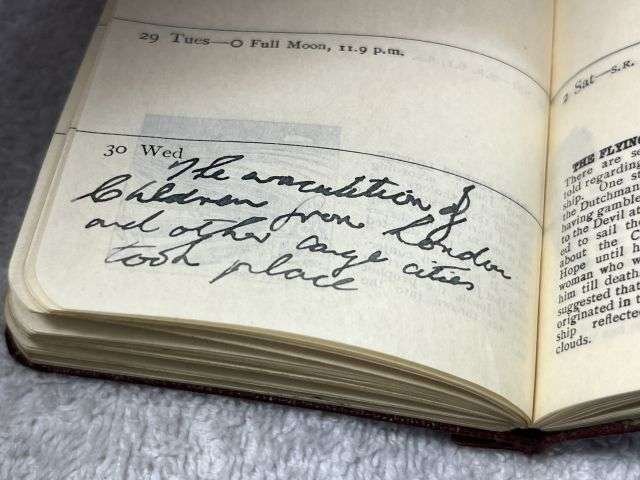 29 Tues—O Full Moon, 11.9 p.m.
30 Wed
The evacuation of
Children from London
and other large cities
took place
2 Sat—S.R.
THE FLYING
There are se
told regarding
ship. One st
the Dutchman
having gamble
to the Devil at
ed to sail the
about the C
Hope until
woman who w
him till death
suggested that
originated in t
ship reflected
clouds.